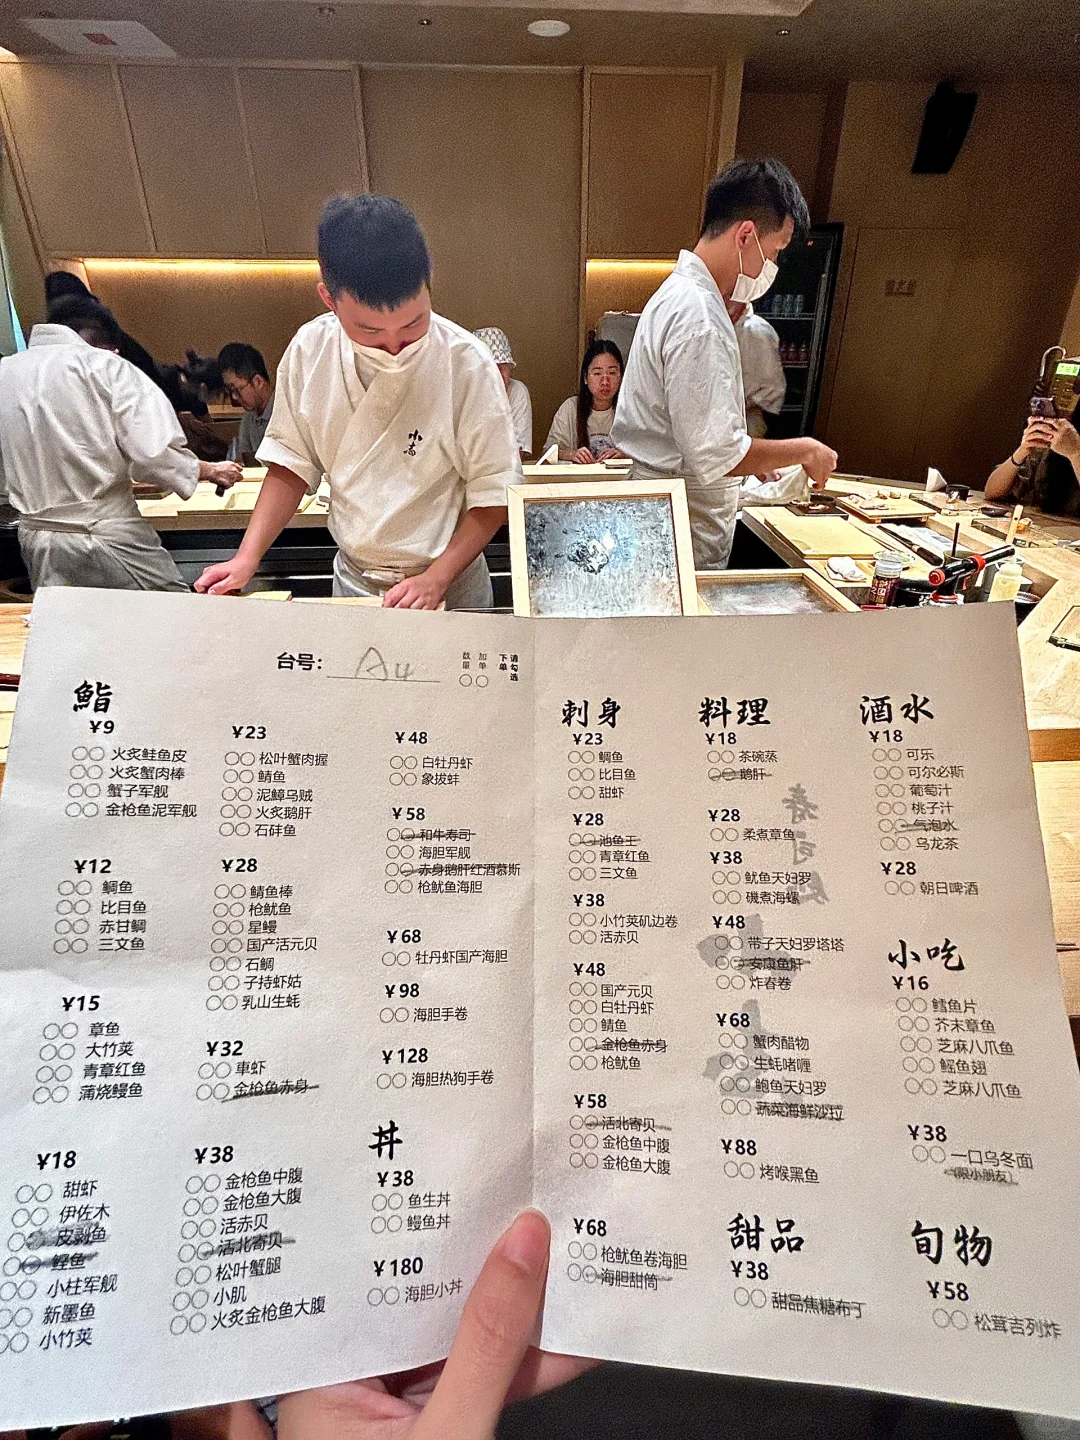 小志
台号： A4
数量 加单 请勾选下单
鮨
¥9
火炙鲑鱼皮
火炙蟹肉棒
蟹子军舰
金枪鱼泥军舰
¥12
鲷鱼
比目鱼
赤甘鲷
三文鱼
¥15
章鱼
大竹荚
青章红鱼
蒲烧鳗鱼
¥18
甜虾
伊佐木
皮剥鱼
鲣鱼
小柱军舰
新墨鱼
小竹荚
¥23
松叶蟹肉握
鲭鱼
泥鳁乌贼
火炙鹅肝
石砗鱼
¥28
鲭鱼棒
枪鱿鱼
星鳗
国产活元贝
石鲷
子持虾姑
乳山生蚝
¥32
車虾
金枪鱼赤身
¥38
金枪鱼中腹
金枪鱼大腹
活赤贝
活北寄贝
松叶蟹腿
小肌
火炙金枪鱼大腹
¥48
白牡丹虾
象拔蚌
¥58
和牛寿司
海胆军舰
赤身鹅肝红酒慕斯
枪鱿鱼海胆
¥68
牡丹虾国产海胆
¥98
海胆手卷
¥128
海胆热狗手卷
丼
¥38
鱼生丼
鳗鱼丼
¥180
海胆小丼
刺身
¥23
鲷鱼
比目鱼
甜虾
¥28
池鱼王
青章红鱼
三文鱼
¥38
小竹荚矶边卷
活赤贝
¥48
国产元贝
白牡丹虾
鲭鱼
金枪鱼赤身
枪鱿鱼
¥58
活北寄贝
金枪鱼中腹
金枪鱼大腹
¥68
枪鱿鱼卷海胆
海胆甜筒
料理
¥18
茶碗蒸
鹅肝
¥28
柔煮章鱼
¥38
鱿鱼天妇罗
磯煮海螺
¥48
带子天妇罗塔塔
安康鱼肝
炸春卷
¥68
蟹肉醋物
生蚝啫喱
鲍鱼天妇罗
蔬菜海鲜沙拉
¥88
烤喉黑鱼
甜品
¥38
甜品焦糖布丁
酒水
¥18
可乐
可尔必斯
葡萄汁
桃子汁
气泡水
乌龙茶
¥28
朝日啤酒
小吃
¥16
鳕鱼片
芥末章鱼
芝麻八爪鱼
鳐鱼翅
芝麻八爪鱼
¥38
一口乌冬面
（限小朋友）
旬物
¥58
松茸吉列炸